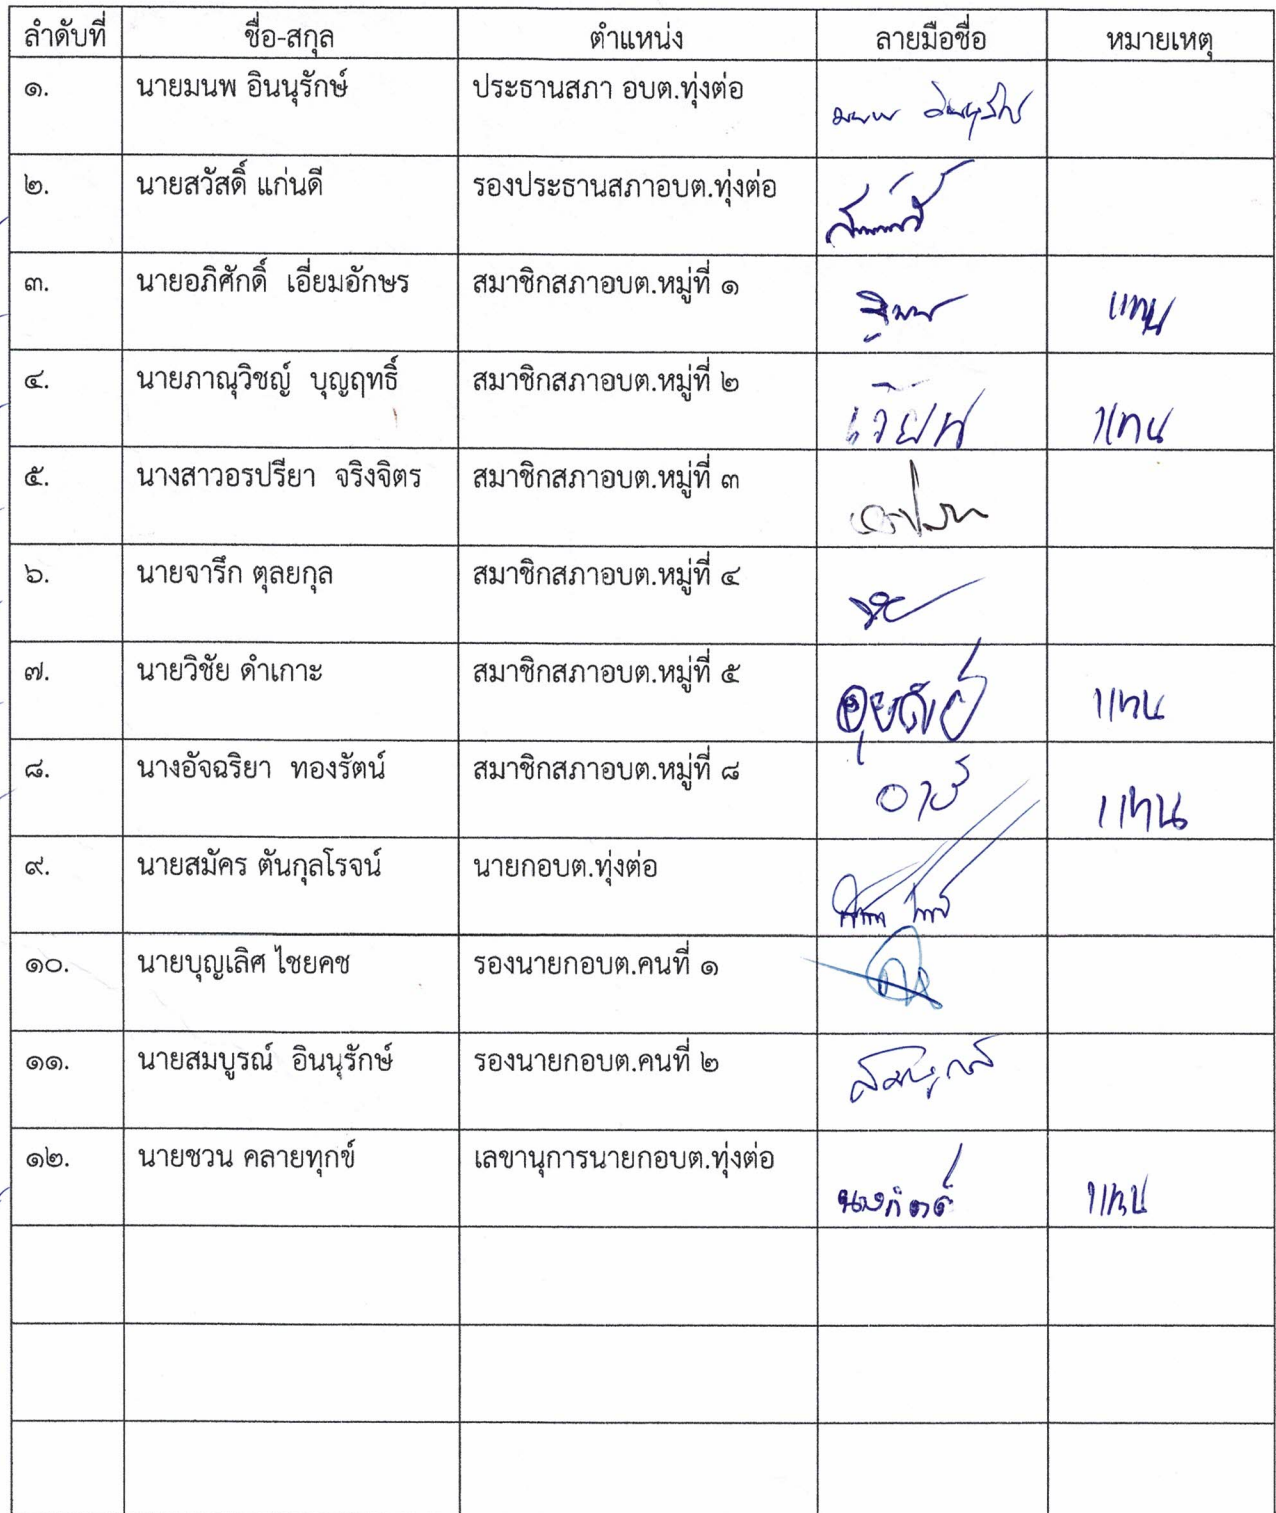 ลำดับที่ ชื่อ-สกุล ตำแหน่ง ลายมือชื่อ หมายเหตุ
๑. นายมนพ อินนุรักษ์ ประธานสภา อบต.ทุ่งต่อ มนพ อินนุรักษ์
๒. นายสวัสดิ์ แก่นดี รองประธานสภาอบต.ทุ่งต่อ
๓. นายอภิศักดิ์ เอี่ยมอักษร สมาชิกสภาอบต.หมู่ที่ ๑ แทน
๔. นายภาณุวิชญ์ บุญฤทธิ์ สมาชิกสภาอบต.หมู่ที่ ๒ แทน
๕. นางสาวอรปรียา จริงจิตร สมาชิกสภาอบต.หมู่ที่ ๓
๖. นายจารึก ตุลยกุล สมาชิกสภาอบต.หมู่ที่ ๔
๗. นายวิชัย ดำเกาะ สมาชิกสภาอบต.หมู่ที่ ๕ แทน
๘. นางอัจฉริยา ทองรัตน์ สมาชิกสภาอบต.หมู่ที่ ๘ แทน
๙. นายสมัคร ตันกุลโรจน์ นายกอบต.ทุ่งต่อ
๑๐. นายบุญเลิศ ไชยคช รองนายกอบต.คนที่ ๑
๑๑. นายสมบูรณ์ อินนุรักษ์ รองนายกอบต.คนที่ ๒
๑๒. นายชวน คลายทุกข์ เลขานุการนายกอบต.ทุ่งต่อ แทน